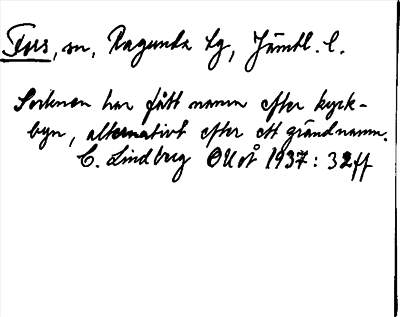 Fors, sn, Ragunda tg, Jämtl. l.
Socknen har fått namn efter kyrk-
byn, alternativt efter ett gårdnamn.
C. Lindberg OUÅ 1937: 32 ff